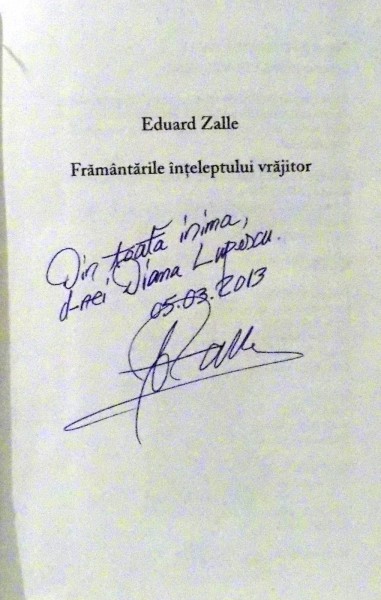 Eduard Zalle
Frământările înțeleptului vrăjitor
Din toată inima,
d-nei Diana Lupescu.
05.03.2013
Zalle